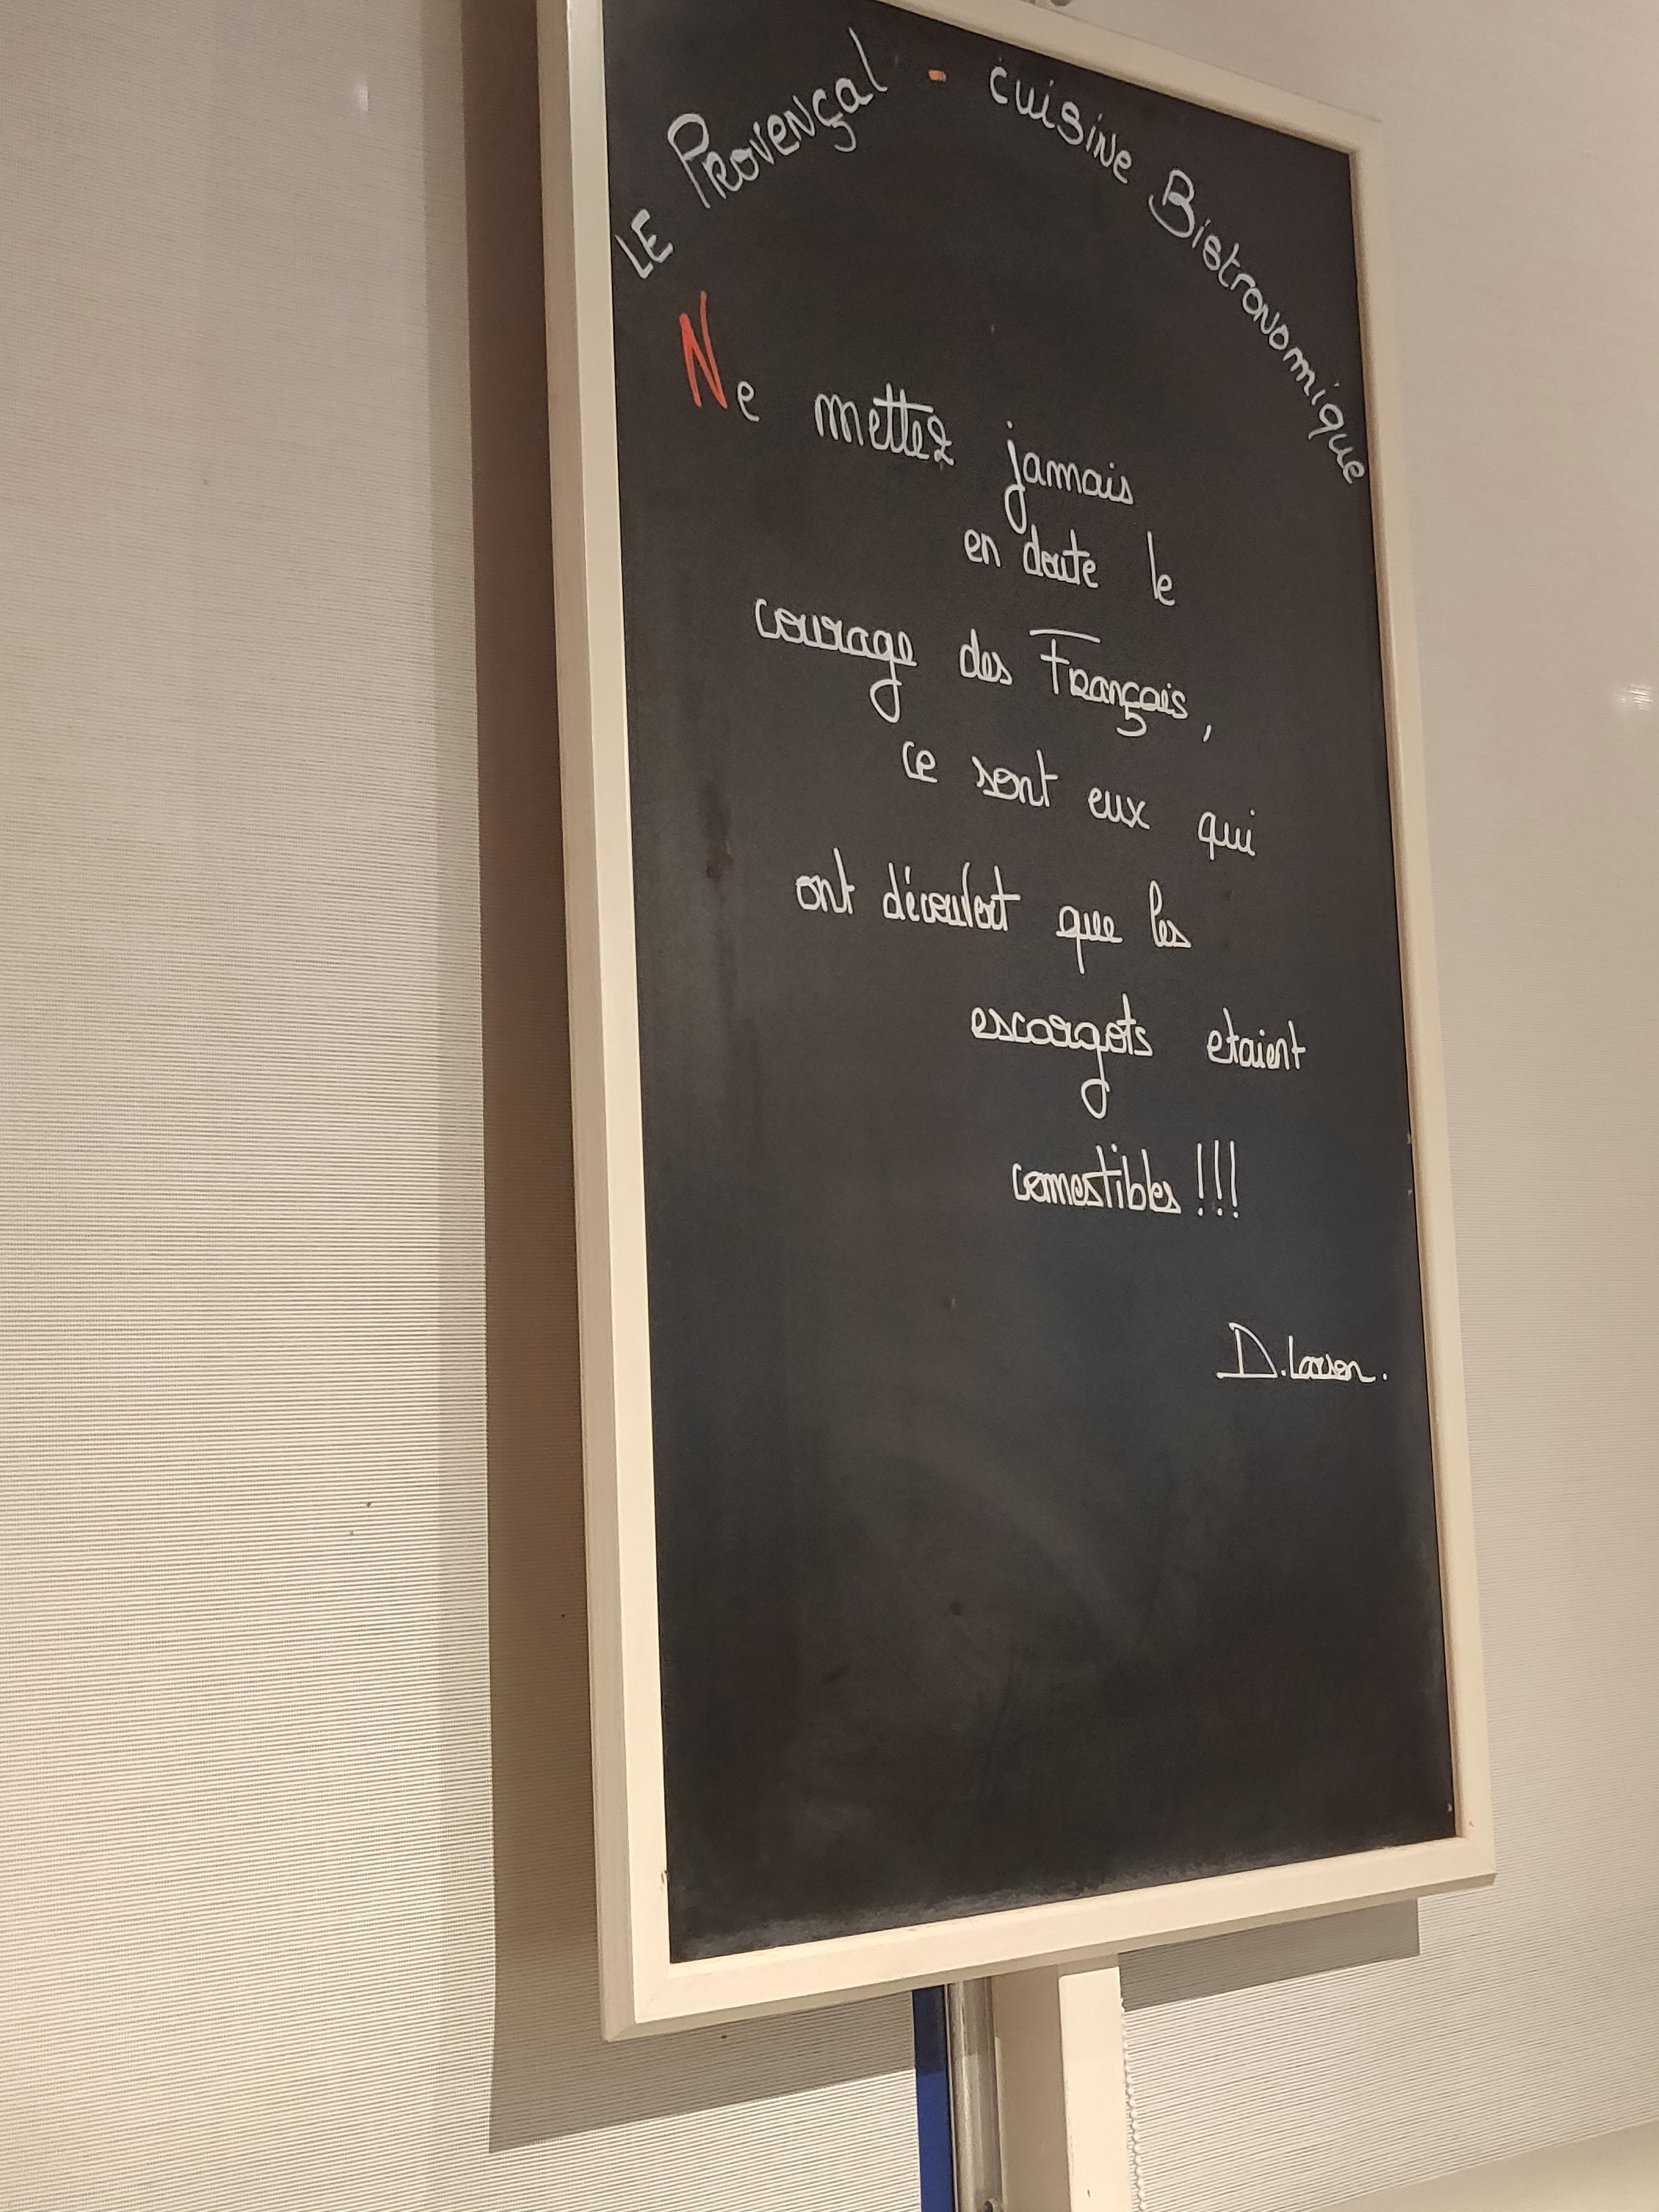 LE Provençal - cuisine Bistronomique
Ne mettez jamais
en doute le
courage des Français,
ce sont eux qui
ont découvert que les
escargots etaient
comestibles !!!
D. Larson.